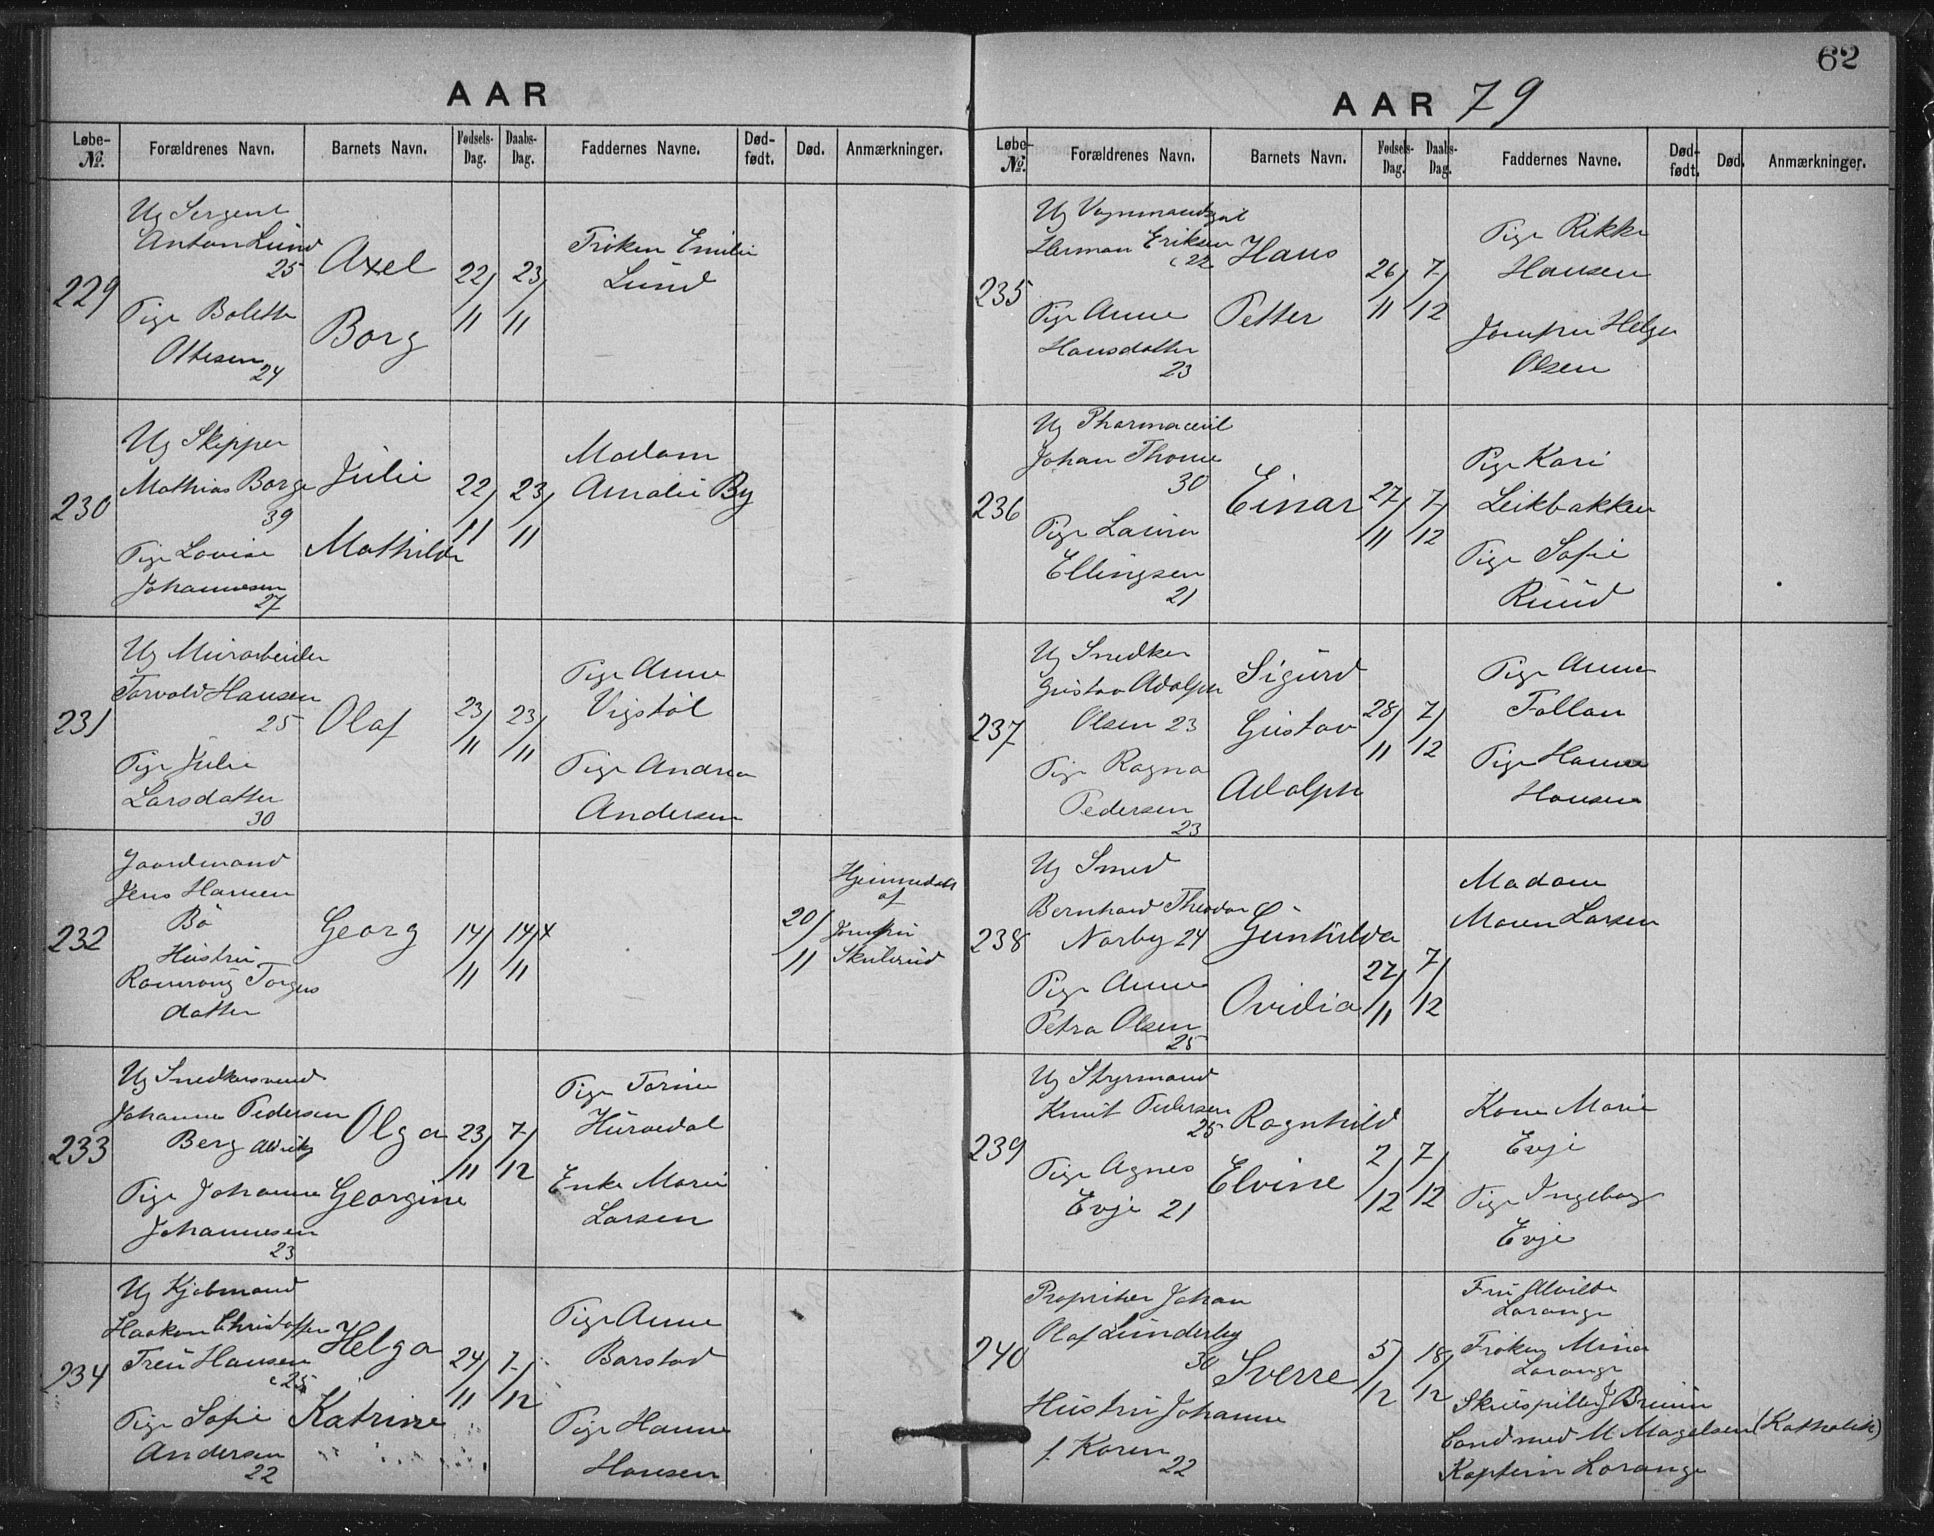 62
AAR
Løbe-№. Forældrenes Navn. Barnets Navn. Fødsels-Dag. Daabs-Dag. Faddernes Navne. Død-født. Død. Anmærkninger.
229
Ug Sergent
Anton Lund
25
Pige Bolette
Ottesen
24
Axel
Borg
22/11 23/11
Frøken Emilie
Lund
230
Ug Skipper
Mathias Borge
39
Pige Lovise
Johannesen
27
Julie
Mathilde
22/11 23/11
Madam
Amalie By
231
Ug Murarbeider
Torvald Hansen
25
Pige Julie
Larsdatter
30
Olaf
23/11 23/11
Pige Anne
Vigstøl
Pige Andrea
Andersen
232
Gaardmand
Jens Hansen
Bö
Hustru
Torges
datter
Georg
14/11 14/11 x
20/11
Hjemmedøbt
af
Jomfru
Skulerud
233
Ug Snedkersvend
Pedersen
Berg
Pige Johanne
Johannesen
23
Olga
Georgine
23/11 7/12
Pige Torine
Hurdal
Enke Marie
Larsen
234
Ug Kjøbmand
Haakon Christoffer
Hansen
c 25
Pige Sofie
Andersen
22
Helga
Katrine
24/11 7/12
Pige Anne
Barstad
Pige Hanne
Hansen
AAR 79
Løbe-№. Forældrenes Navn. Barnets Navn. Fødsels-Dag. Daabs-Dag. Faddernes Navne. Død-født. Død. Anmærkninger.
235
Ug
Herman Eriksen
c 22
Pige Anne
Hansdatter
23
Hans
Petter
26/11 7/12
Pige Rikke
Hansen
Jomfru Helga
Olsen
236
Ug Pharmaceut
Johan Thome
30
Pige Laura
Ellingsen
21
Einar
27/11 7/12
Pige Kari
Leikbakken
Pige Sofie
Ruud
237
Ug Snedker
Gustav Adolph
Olsen 23
Pige Ragna
Pedersen
23
Sigurd
Gustav
Adolph
28/11 7/12
Pige Anne
Follan
Pige Hanne
Hansen
238
Ug Smed
Bernhard Theodor
Norby 24
Pige Anne
Petra Olsen
25
Gunhilda
Ovidia
27/11 7/12
Madam
Maren Larsen
239
Ug Styrmand
Knut Pedersen
25
Pige Agnes
Evje 21
Ragnhild
Elvine
2/12 7/12
Kone Marie
Evje
Pige Ingeborg
Evje
240
Propritær Johan
Olaf Lunderby
30
Hustru Johanne
f. Koren
22
Sverre
5/12 18/12
Fru Alvilde
Lorange
Frøken Mina
Lorange
Skuespiller J Bruun
Cand med M Magelsen (Katholik)
Kaptein Lorange